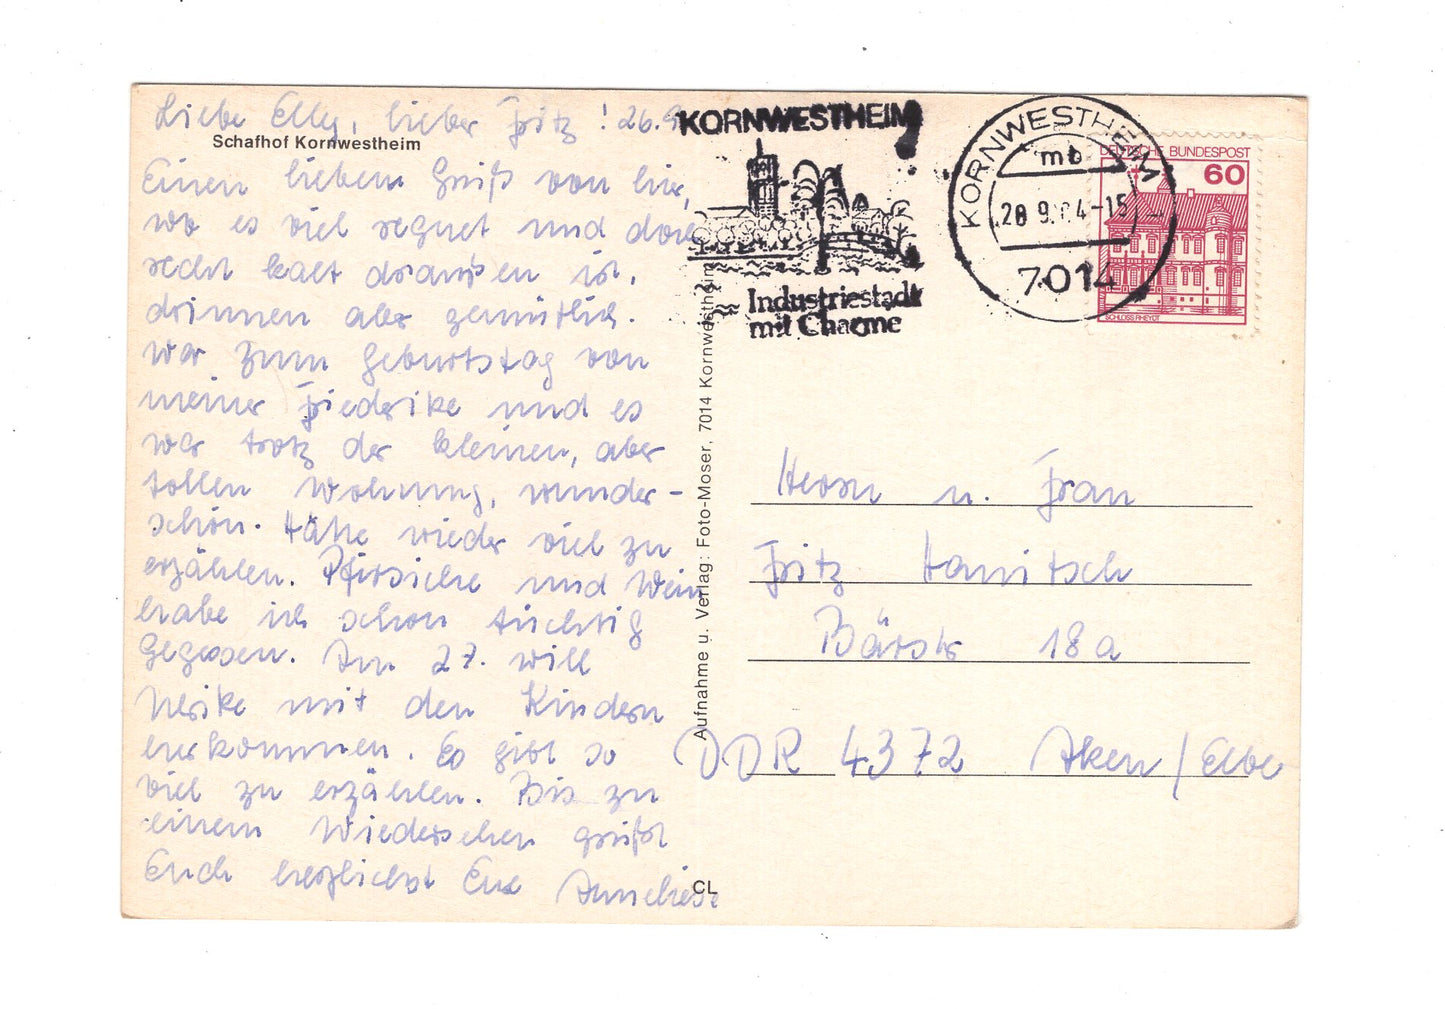 Liebe Elly, lieber Fritz! 26.9.
Schafhof Kornwestheim
Einen lieben Gruß von hier,
wo es viel regnet und dort
recht kalt draußen ist,
drinnen aber gemütlich.
War zum Geburtstag von
meiner Friederike und es
war trotz der kleinen, aber
tollen Wohnung, wunder-
schön. Hätte wieder viel zu
erzählen. Pfirsiche und Wein
habe ich schon tüchtig
gegessen. Am 27. will
Ulrike mit den Kindern
herkommen. Es gibt so
viel zu erzählen. Bis zu
einem Wiedersehen grüßt
Euch herzlichst Eure Anneliese
Aufnahme u. Verlag: Foto-Moser, 7014 Kornwestheim
CL
KORNWESTHEIM
Industriestadt
mit Charme
KORNWESTHEIM
mb
28.9.84-15
7014
DEUTSCHE BUNDESPOST
60
SCHLOSS RHEYDT
Herrn u. Frau
Fritz Hanitsch
Bärstr 18a
DDR 4372 Aken/Elbe